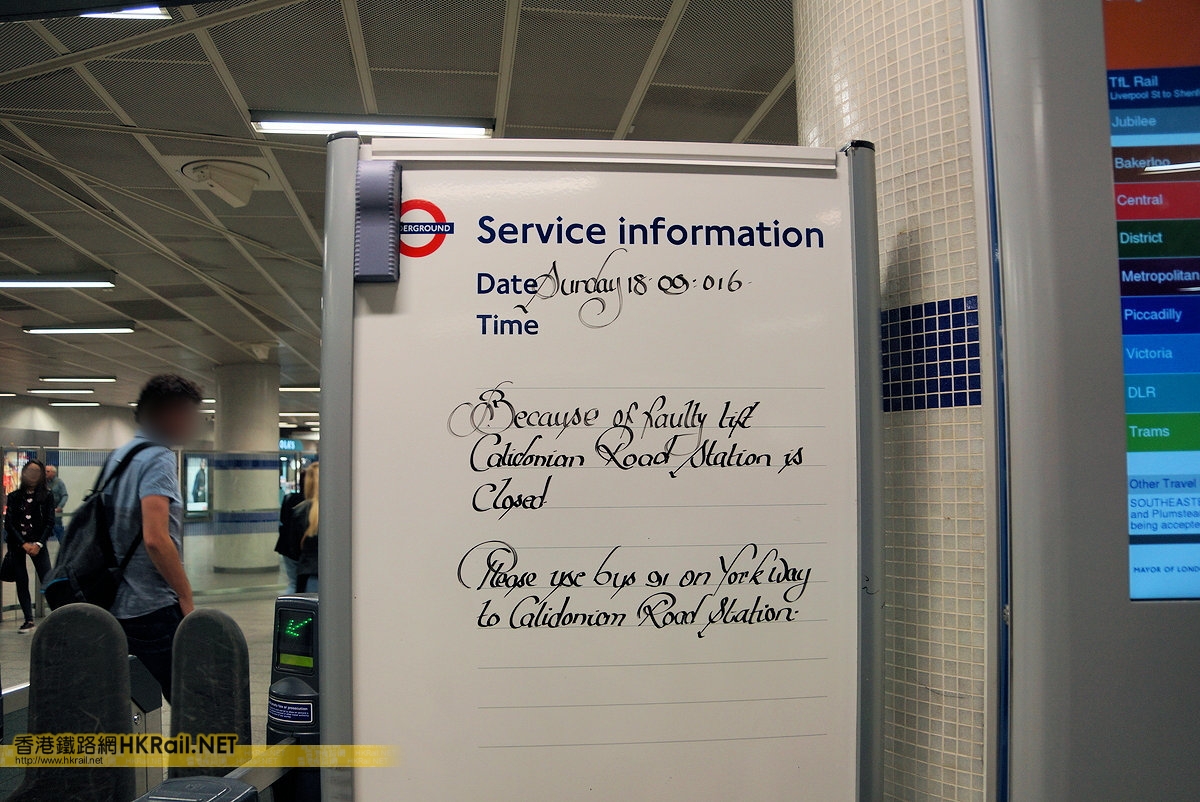 ERGROUND
Service information
Date Sunday 18·09·016·
Time
Because of faulty lift
Calidonian Road Station is
Closed
Please use bus 91 on York Way
to Calidonian Road Station·
TfL Rail
Liverpool St to Shenf
Jubilee
Bakerloo
Central
District
Metropolitan
Piccadilly
Victoria
DLR
Trams
Other Travel
SOUTHEASTE
and Plumstea
being accepte
MAYOR OF LOND
香港鐵路網HKRail.NET
http://www.hkrail.net